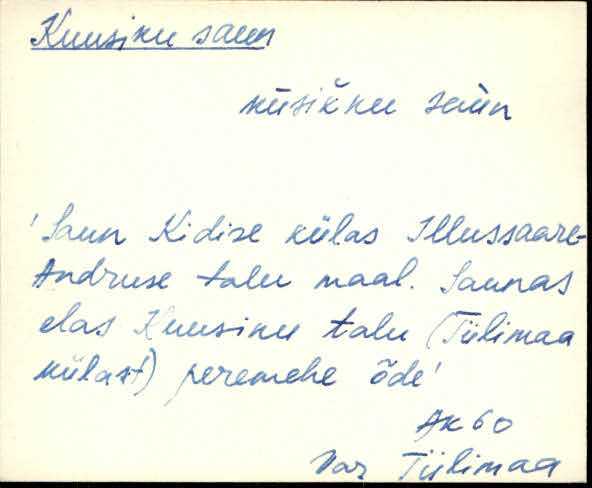 Kuusiku saun
küsikku saun
'Saun Kidise külas Illussaare-
Andruse talu maal. Saunas
elas Kuusiku talu (Tiilimaa
külast) peremehe õde'
AK 60
Var Tiilimaa